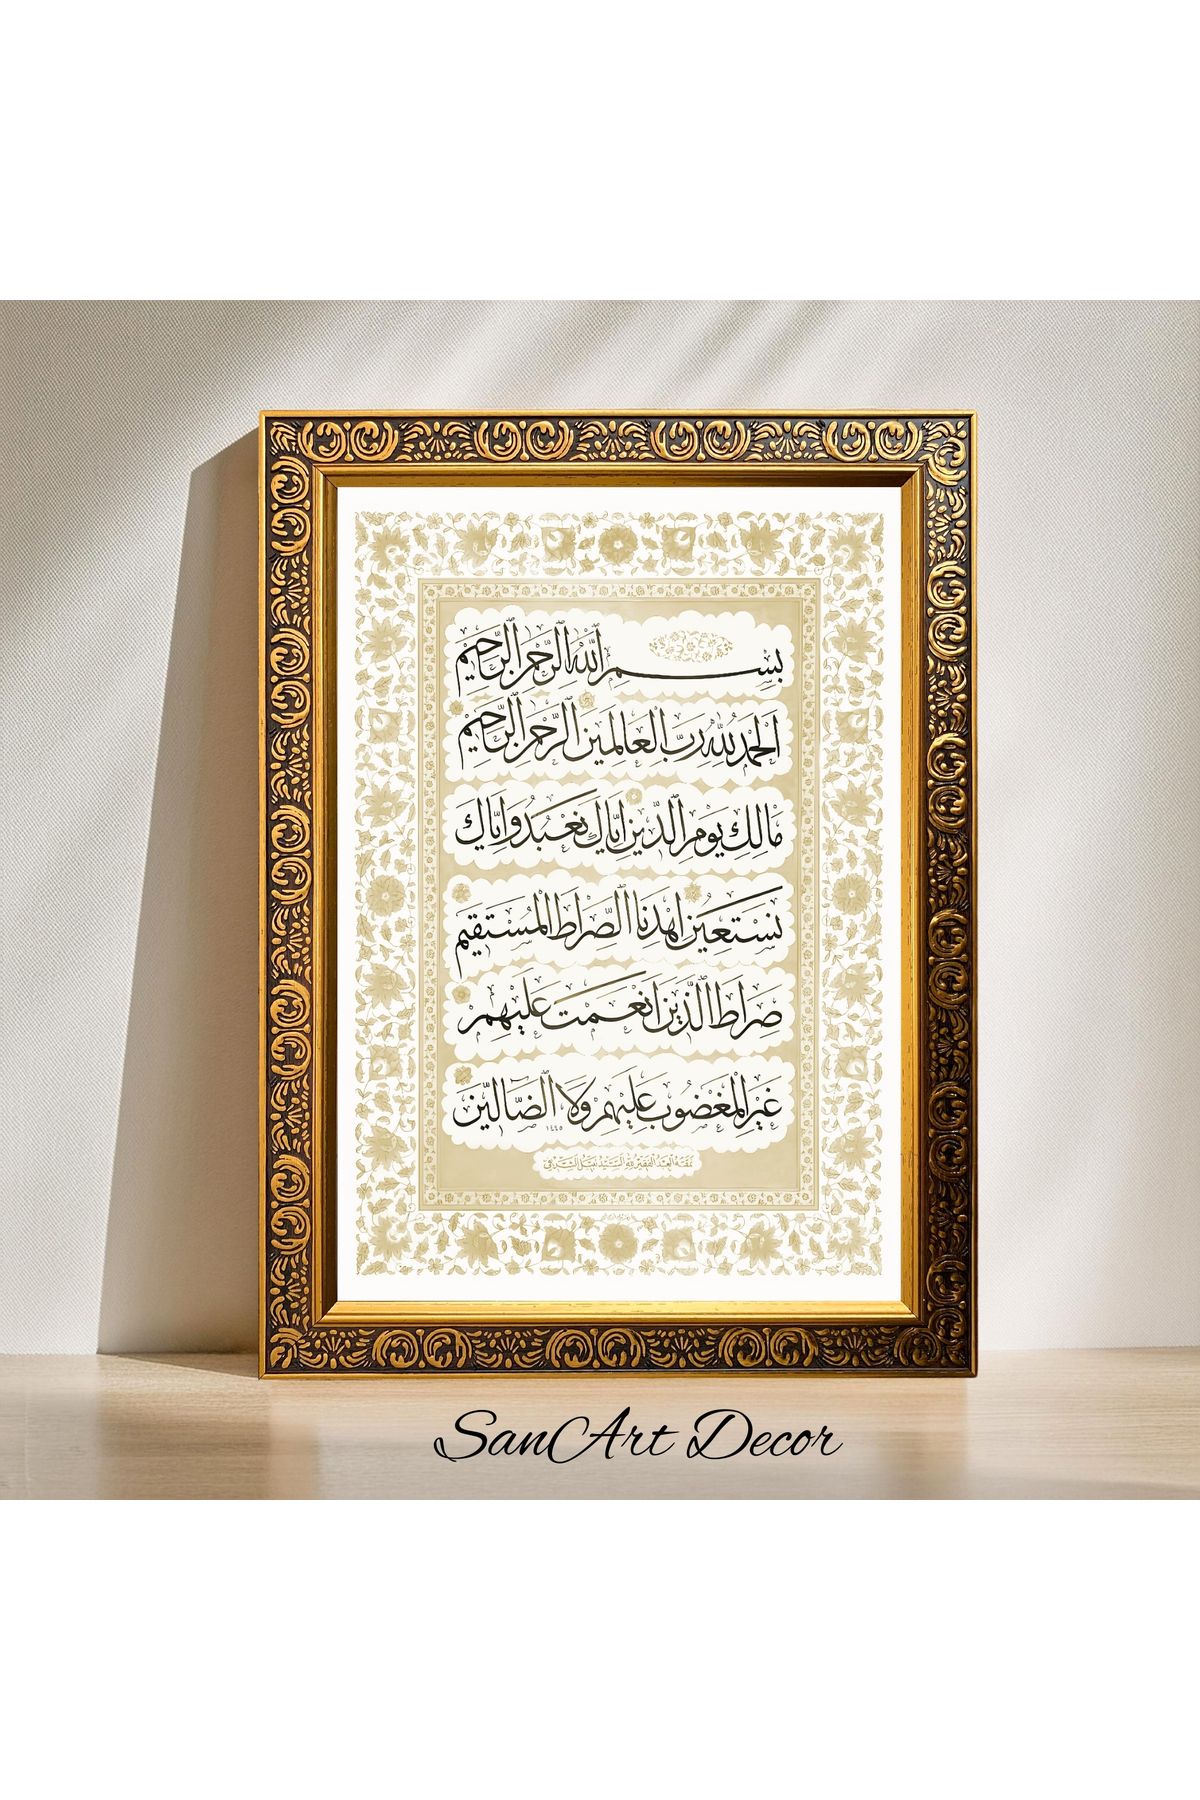 بِسْمِ اللَّهِ الرَّحْمَنِ الرَّحِيمِ
اَلْحَمْدُ لِلَّهِ رَبِّ الْعَالَمِينَ الرَّحْمَنِ الرَّحِيمِ
مَالِكِ يَوْمِ الدِّينِ اِيَّاكَ نَعْبُدُ وَاِيَّاكَ
نَسْتَعِينُ اِهْدِنَا الصِّرَاطَ الْمُسْتَقِيمَ
صِرَاطَ الَّذِينَ اَنْعَمْتَ عَلَيْهِمْ
غَيْرِ الْمَغْضُوبِ عَلَيْهِمْ وَلَا الضَّالِّينَ
١٤٤٥
نمقه العبد الفقير لله السيد نبيل الشريفي
SanArt Decor